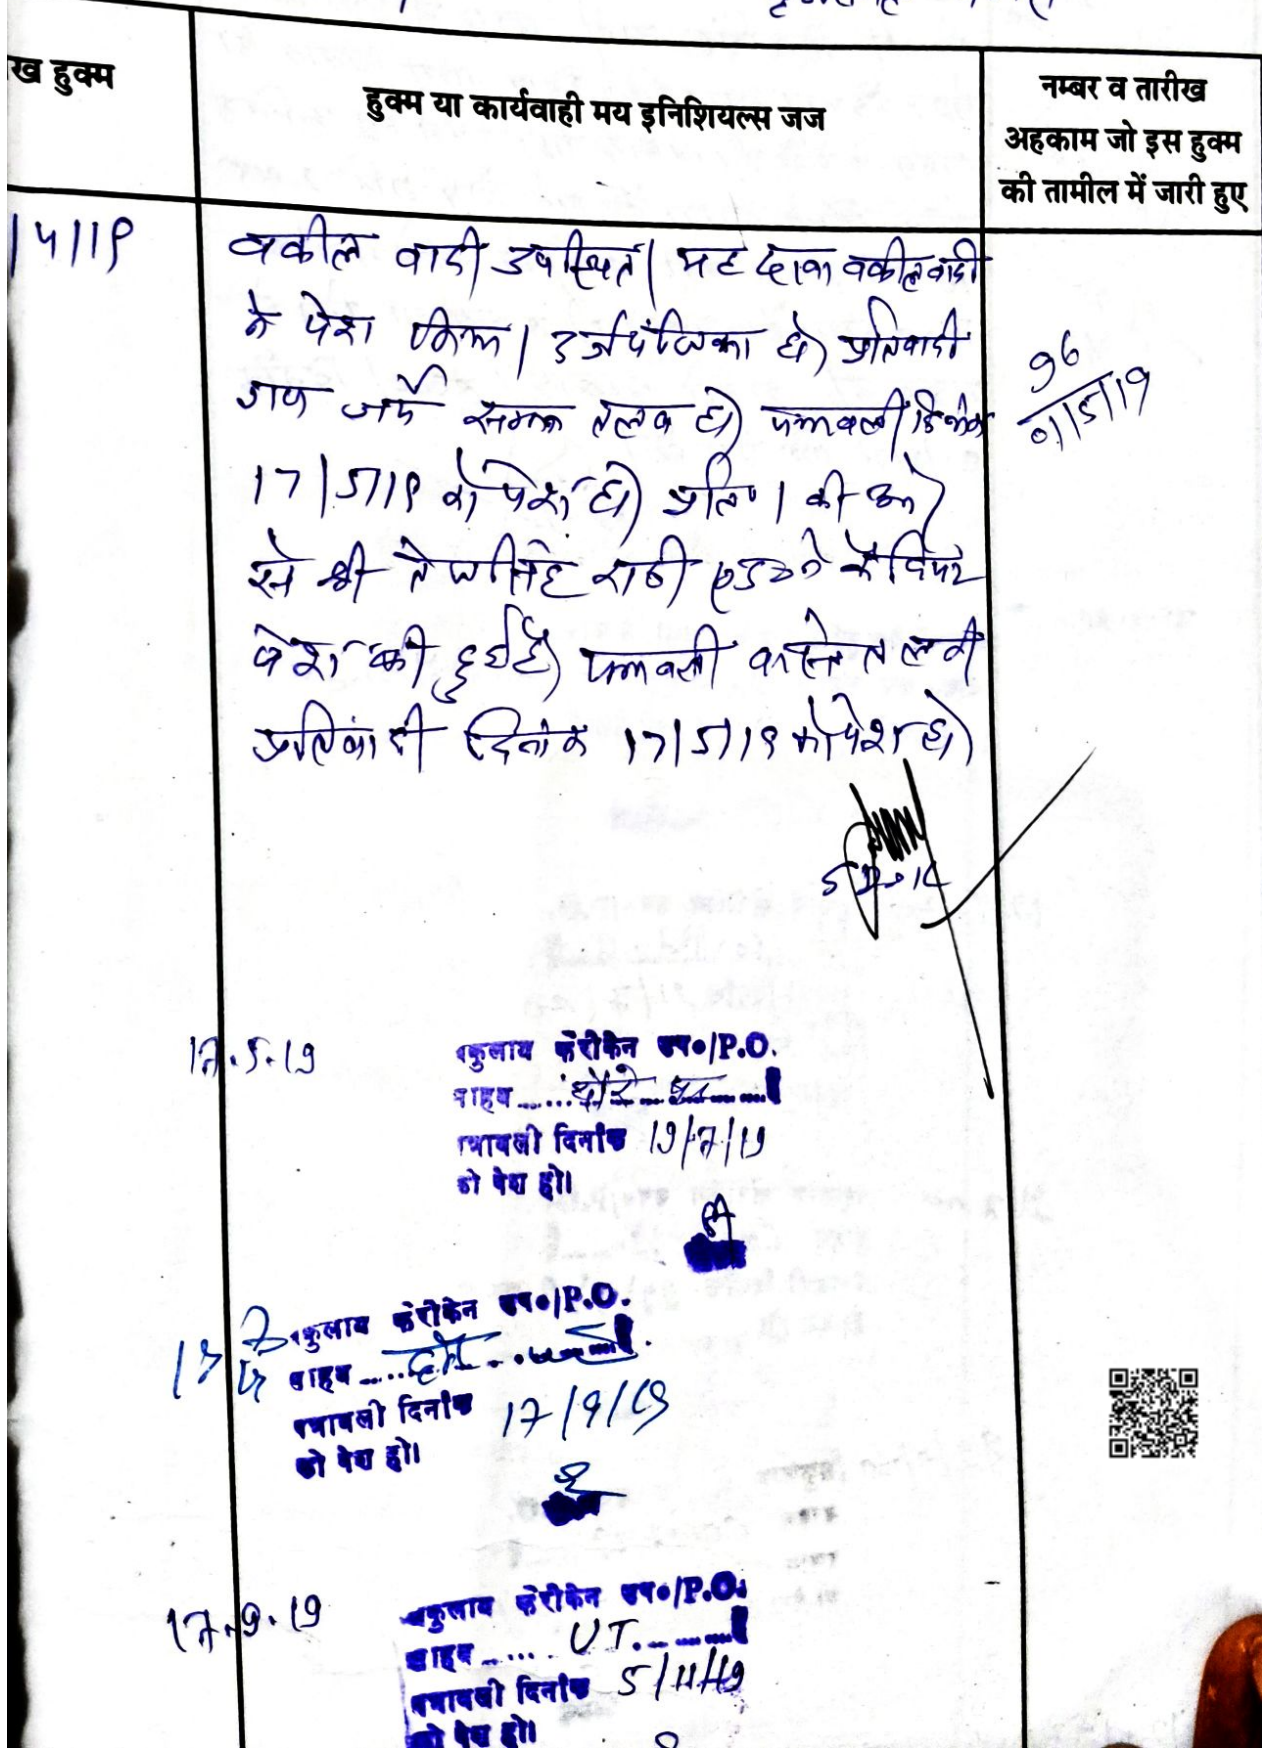 ख हुक्म
हुक्म या कार्यवाही मय इनिशियल्स जज
नम्बर व तारीख
अहकाम जो इस हुक्म
की तामील में जारी हुए
वकील वादी उपस्थित। वकील वादी
ने पेश किया। दर्ज पंजिका हो। प्रतिवादी
गण जर्ये समन तलब हो। पत्रावली दिनांक
17/5/19 को पेश हो। प्रति० 1 की ओर
से श्री तेजसिंह राठी एडवो० केवियट
पेश की हुई है। पत्रावली वास्ते तलबी
प्रतिवादी दिनांक 17/5/19 को पेश हो।
96
01/5/19
17.5.19
वकुलाय फेरीकेन उप०/P.O.
साहब ...... दौरे पर ......।
पत्रावली दिनांक 19/7/19
को पेश हो।
वकुलाय फेरीकेन उप०/P.O.
साहब ......
पत्रावली दिनांक 17/9/19
को पेश हो।
17.9.19
वकुलाय फेरीकेन उप०/P.O.
साहब ...... UT. ......।
पत्रावली दिनांक 5/11/19
को पेश हो।